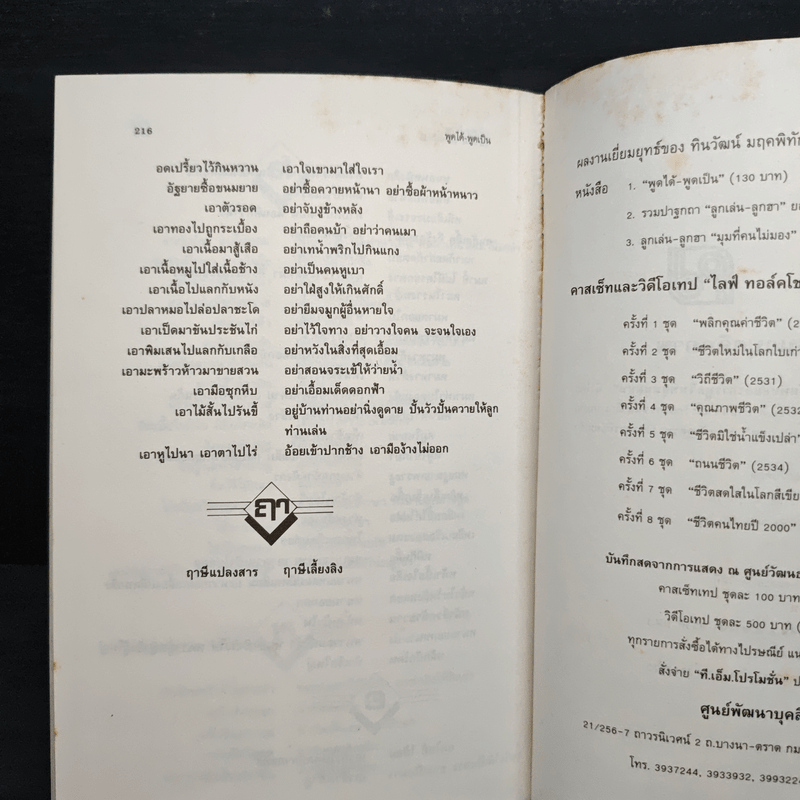 216
พูดได้-พูดเป็น
อดเปรี้ยวไว้กินหวาน เอาใจเขามาใส่ใจเรา
อัฐยายซื้อขนมยาย อย่าซื้อควายหน้านา อย่าซื้อผ้าหน้าหนาว
เอาตัวรอด อย่าจับงูข้างหลัง
เอาทองไปถูกระเบื้อง อย่าถือคนบ้า อย่าว่าคนเมา
เอาเนื้อมาสู้เสือ อย่าเทน้ำพริกไปกินแกง
เอาเนื้อหมูไปใส่เนื้อช้าง อย่าเป็นคนหูเบา
เอาเนื้อไปแลกกับหนัง อย่าใฝ่สูงให้เกินศักดิ์
เอาปลาหมอไปล่อปลาชะโด อย่ายืมจมูกผู้อื่นหายใจ
เอาเป็ดมาขันประชันไก่ อย่าไว้ใจทาง อย่าวางใจคน จะจนใจเอง
เอาพิมเสนไปแลกกับเกลือ อย่าหวังในสิ่งที่สุดเอื้อม
เอามะพร้าวห้าวมาขายสวน อย่าสอนจระเข้ให้ว่ายน้ำ
เอามือซุกหีบ อย่าเอื้อมเด็ดดอกฟ้า
เอาไม้สั้นไปรันขี้ อยู่บ้านท่านอย่านิ่งดูดาย ปั้นวัวปั้นควายให้ลูก
ท่านเล่น
เอาหูไปนา เอาตาไปไร่ อ้อยเข้าปากช้าง เอามือง้างไม่ออก
ฤา
ฤาษีแปลงสาร ฤาษีเลี้ยงลิง
ผลงานเยี่ยมยุทธ์ของ ทินวัฒน์ มฤคพิทัก
หนังสือ 1. “พูดได้-พูดเป็น” (130 บาท)
2. รวมปาฐกถา “ลูกเล่น-ลูกฮา”
3. ลูกเล่น-ลูกฮา “มุมที่คนไม่มอง”
คาสเซ็ทและวิดีโอเทป “ไลฟ์ ทอล์คโช
ครั้งที่ 1 ชุด “พลิกคุณค่าชีวิต” (2
ครั้งที่ 2 ชุด “ชีวิตใหม่ในโลกใบเก่า
ครั้งที่ 3 ชุด “วิถีชีวิต” (2531)
ครั้งที่ 4 ชุด “คุณภาพชีวิต” (2532
ครั้งที่ 5 ชุด “ชีวิตมิใช่น้ำแข็งเปล่า”
ครั้งที่ 6 ชุด “ถนนชีวิต” (2534)
ครั้งที่ 7 ชุด “ชีวิตสดใสในโลกสีเขีย
ครั้งที่ 8 ชุด “ชีวิตคนไทยปี 2000”
บันทึกสดจากการแสดง ณ ศูนย์วัฒน
คาสเซ็ทเทป ชุดละ 100 บาท
วิดีโอเทป ชุดละ 500 บาท (
ทุกรายการสั่งซื้อได้ทางไปรษณีย์
สั่งจ่าย “ที.เอ็ม.โปรโมชั่น”
ศูนย์พัฒนาบุคลิ
21/256-7 ถาวรนิเวศน์ 2 ถ.บางนา-ตราด กม
โทร. 3937244, 3933932, 3993224